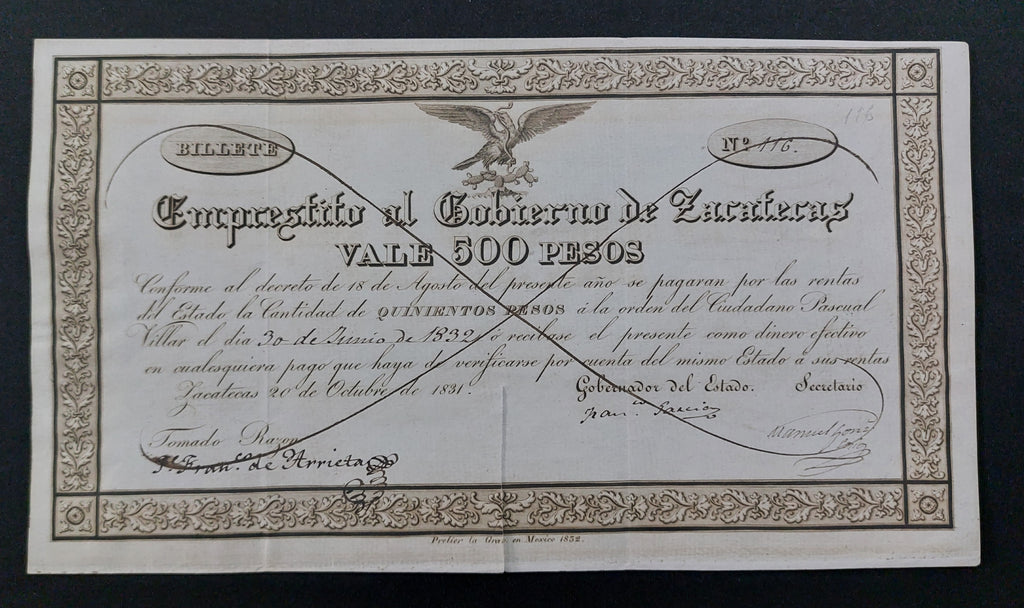 116
BILLETE
Nº 116.
Emprestito al Gobierno de Zacatecas
VALE 500 PESOS
Conforme al decreto de 18 de Agosto del presente año se pagaran por las rentas
del Estado la Cantidad de QUINIENTOS PESOS á la orden del Ciudadano Pascual
Villar el dia 30 de Junio de 1832 ó recibase el presente como dinero efectivo
en cualesquiera pago que haya de verificarse por cuenta del mismo Estado á sus rentas
Zacatecas 20 de Octubre de 1831.
Gobernador del Estado. Secretario
Franco. Garcia
Manuel Gonz
Tomado Razon
Franco. de Arrieta
Prelier la Grav. en Mexico 1832.